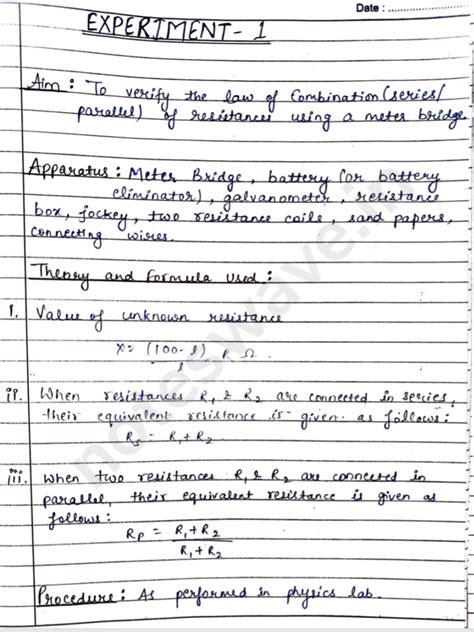 Date : ................
EXPERIMENT- 1
Aim : To verify the law of Combination (series/
parallel) of resistances using a meter bridge.
Apparatus : Meter Bridge, battery (or battery
eliminator), galvanometer, resistance
box, jockey, two resistance coils, sand papers,
connecting wires.
Theory and Formula Used :
i. Value of unknown resistance
X = (100-l)/l R Ω.
ii. When resistances R₁ & R₂ are connected in series,
their equivalent resistance is given as follows:
Rs = R₁ + R₂
iii. When two resistances R₁ & R₂ are connected in
parallel, their equivalent resistance is given as
follows :
Rp = R₁ + R₂
R₁ + R₂
Procedure : As performed in physics lab.
noteswave.in